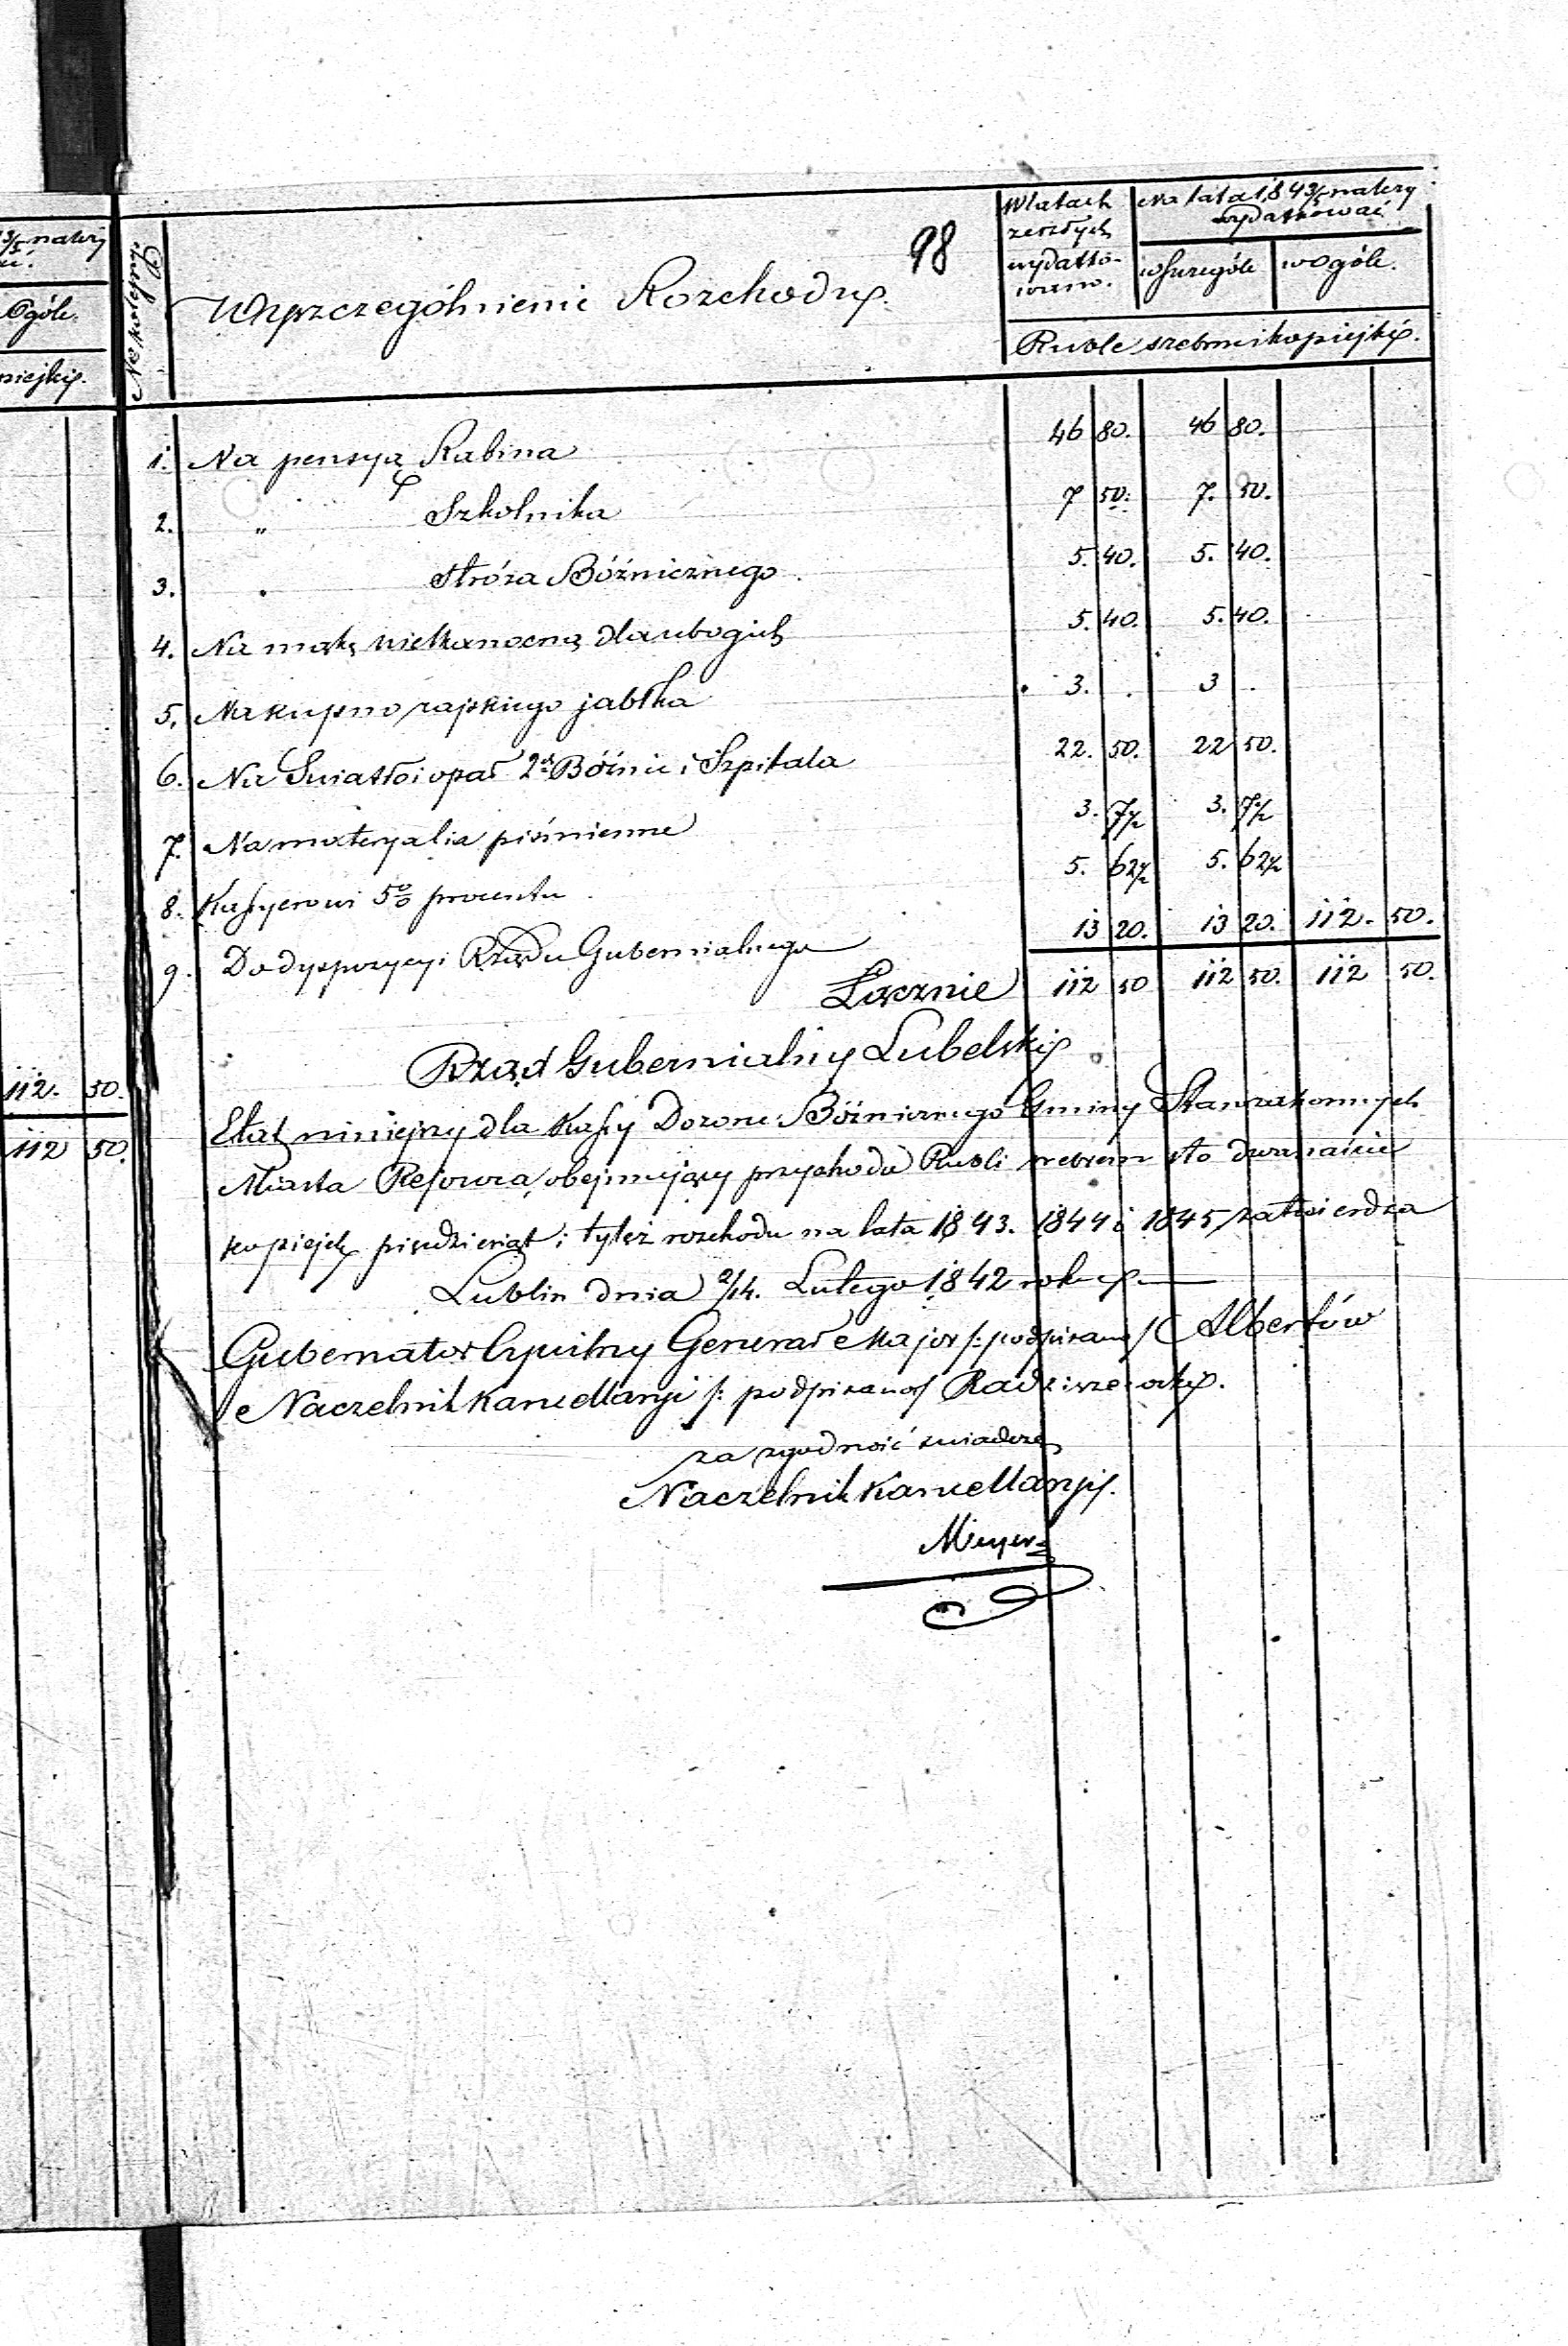 3/5 należy
Ogóle
kopiejki.
112. 50.
112 50.
98
No kolejny
Wyszczególnienie Rozchodu.
W latach zeszłych wydatkowano.
Na lata 1843/5 należy wydatkować
w szczególe
w ogóle.
Ruble srebrne i kopiejki.
1. Na pensyą Rabina 46 80. 46 80.
2. " Szkolnika 7 50. 7. 50.
3. " Stróża Bóżnicznego. 5. 40. 5. 40.
4. Na mąkę wielkanocną dla ubogich 5. 40. 5. 40.
5. Na kupno rajskiego jabłka 3. . 3 .
6. Na Światło i opał 2ch Bóżnic i Szpitala 22. 50. 22 50.
7. Na materyalia piśmienne 3. 7½ 3. 7½
8. Kassyerowi 5% procentu 5. 62½ 5. 62½
9. Do dyspozycyi Rządu Gubernialnego 13 20. 13 20. 112. 50.
Łącznie 112 50 112 50. 112 50.
Rząd Gubernialny Lubelski
Etat niniejszy dla Kassy Dozoru Bóżnicznego Gminy Starozakonnych
Miasta Rejowca, obejmujący przychodu Rubli srebrem sto dwanaście
kopiejek pięćdziesiąt i tyleż rozchodu na lata 1843. 1844 i 1845, zatwierdza
Lublin dnia 2/14. Lutego 1842 roku
Gubernator Cywilny Generał Major /: podpisano / Albertów
Naczelnik Kancellaryi /: podpisano / Radziszewski.
za zgodność świadczę
Naczelnik Kancellaryi.
Meyer